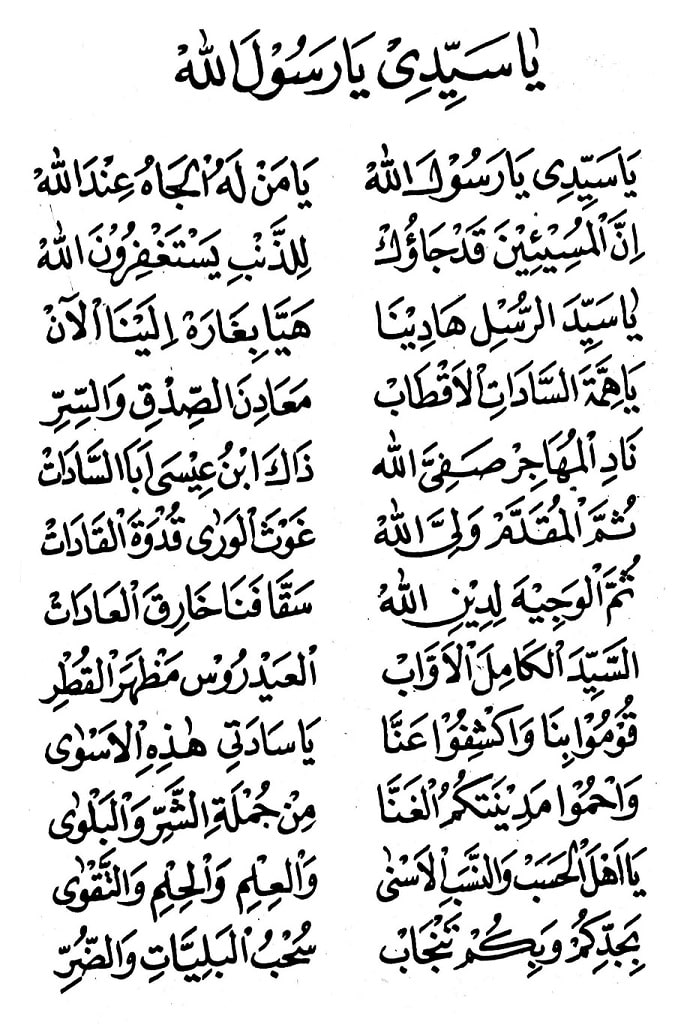 يٰا سَيِّدِيْ يَا رَسُوْلَ اللهْ
يَا سَيِّدِى يَا رَسُوْلَ اللهْ يَا مَنْ لَهُ الْجَاهُ عِنْدَ اللهْ
اِنَّ الْمُسِيْئِيْنَ قَدْ جَاؤُكْ لِلذَّنْبِ يَسْتَغْفِرُوْنَ اللهْ
يٰا سَيِّدَ الرُّسُلِ هَادِيْنَا هَيَّا بِغَارَهْ اِلَيْنَا الْآنْ
يَا هِمَّةَ السَّادَاتِ الْاَقْطَابْ مَعَادِنَ الصِّدْقِ وَالسِّرِّ
نَادِ الْمُهَاجِرْ صَفِىَّ الله ذَاكَ ابْنُ عِيْسَى اَبَا السَّادَاتْ
ثُمَّ الْمُقَدَّمْ وَلِىَّ اللهْ غَوْثَ الْوَرٰى قُدْوَةَ الْقَادَاتْ
ثُمَّ الْوَجِيْهَ لِدِيْنِ اللهْ سَقَّافَنَا خَارِقَ الْعَادَاتْ
السَّيِّدَ الْكَامِلَ الْاَوَّابْ الْعَيْدَرُوْسْ مَظْهَرَ الْقُطْرِ
قُوْمُوْا بِنَا وَاكْشِفُوْا عَنَّا يَا سَادَتِي هٰذِهِ الْاَسْوٰى
وَاحْمُوْا مَدِيْنَتَكُمُ الْغَنَّا مِنْ جُمْلَةِ الشَّرِّ وَالْبَلْوٰى
يَا اَهْلَ الْحَسَبْ وَالنَّسَبِ الْاَسْنٰى وَالْعِلْمِ وَالْحِلْمِ وَالتَّقْوٰى
بِجَدِّكُمْ وَبِكُمْ تَنْجَابْ سُحْبُ الْبَلِيَّاتِ وَالضُّرِّ